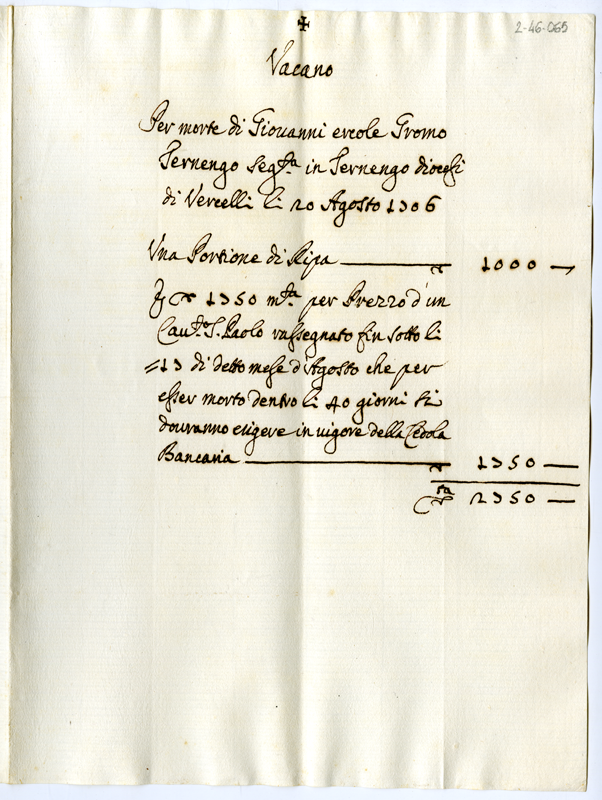 2-46-065
✠
Vacano
Per morte di Giovanni ercole Gromo
Ternengo seg.ta in Ternengo diocesi
di Vercelli li 20 Agosto 1706
Una Portione di Ripa 1000
1350 m.ta per Prezzo d'un
Cau.to S. Paolo rassegnato fin sotto li
=13 di detto mese d'Agosto che per
esser morto dentro li 40 giorni si
douranno esigere in uigore della Cedola
Bancaria 1350
2350